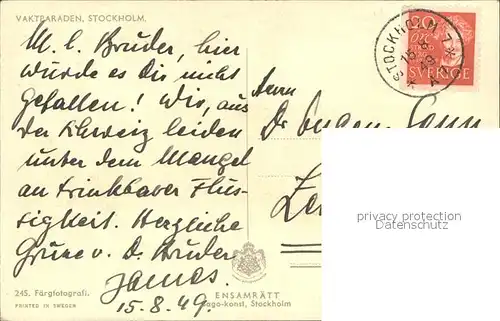 VAKTPARADEN, STOCKHOLM.
M. l. Bruder, hier
wurde es Dir nicht
gefallen! Wir, aus
der Schweiz leiden
unter dem Mangel
an trinkbarer Flüs-
sigkeit. Herzliche
Grüsse v. D. Bruder
James.
15.8.49.
245. Färgfotografi.
PRINTED IN SWEDEN
ENSAMRÄTT
Sago-konst, Stockholm
STOCKHOLM 7
SVERIGE
Herrn
Dr
privacy protection
Datenschutz